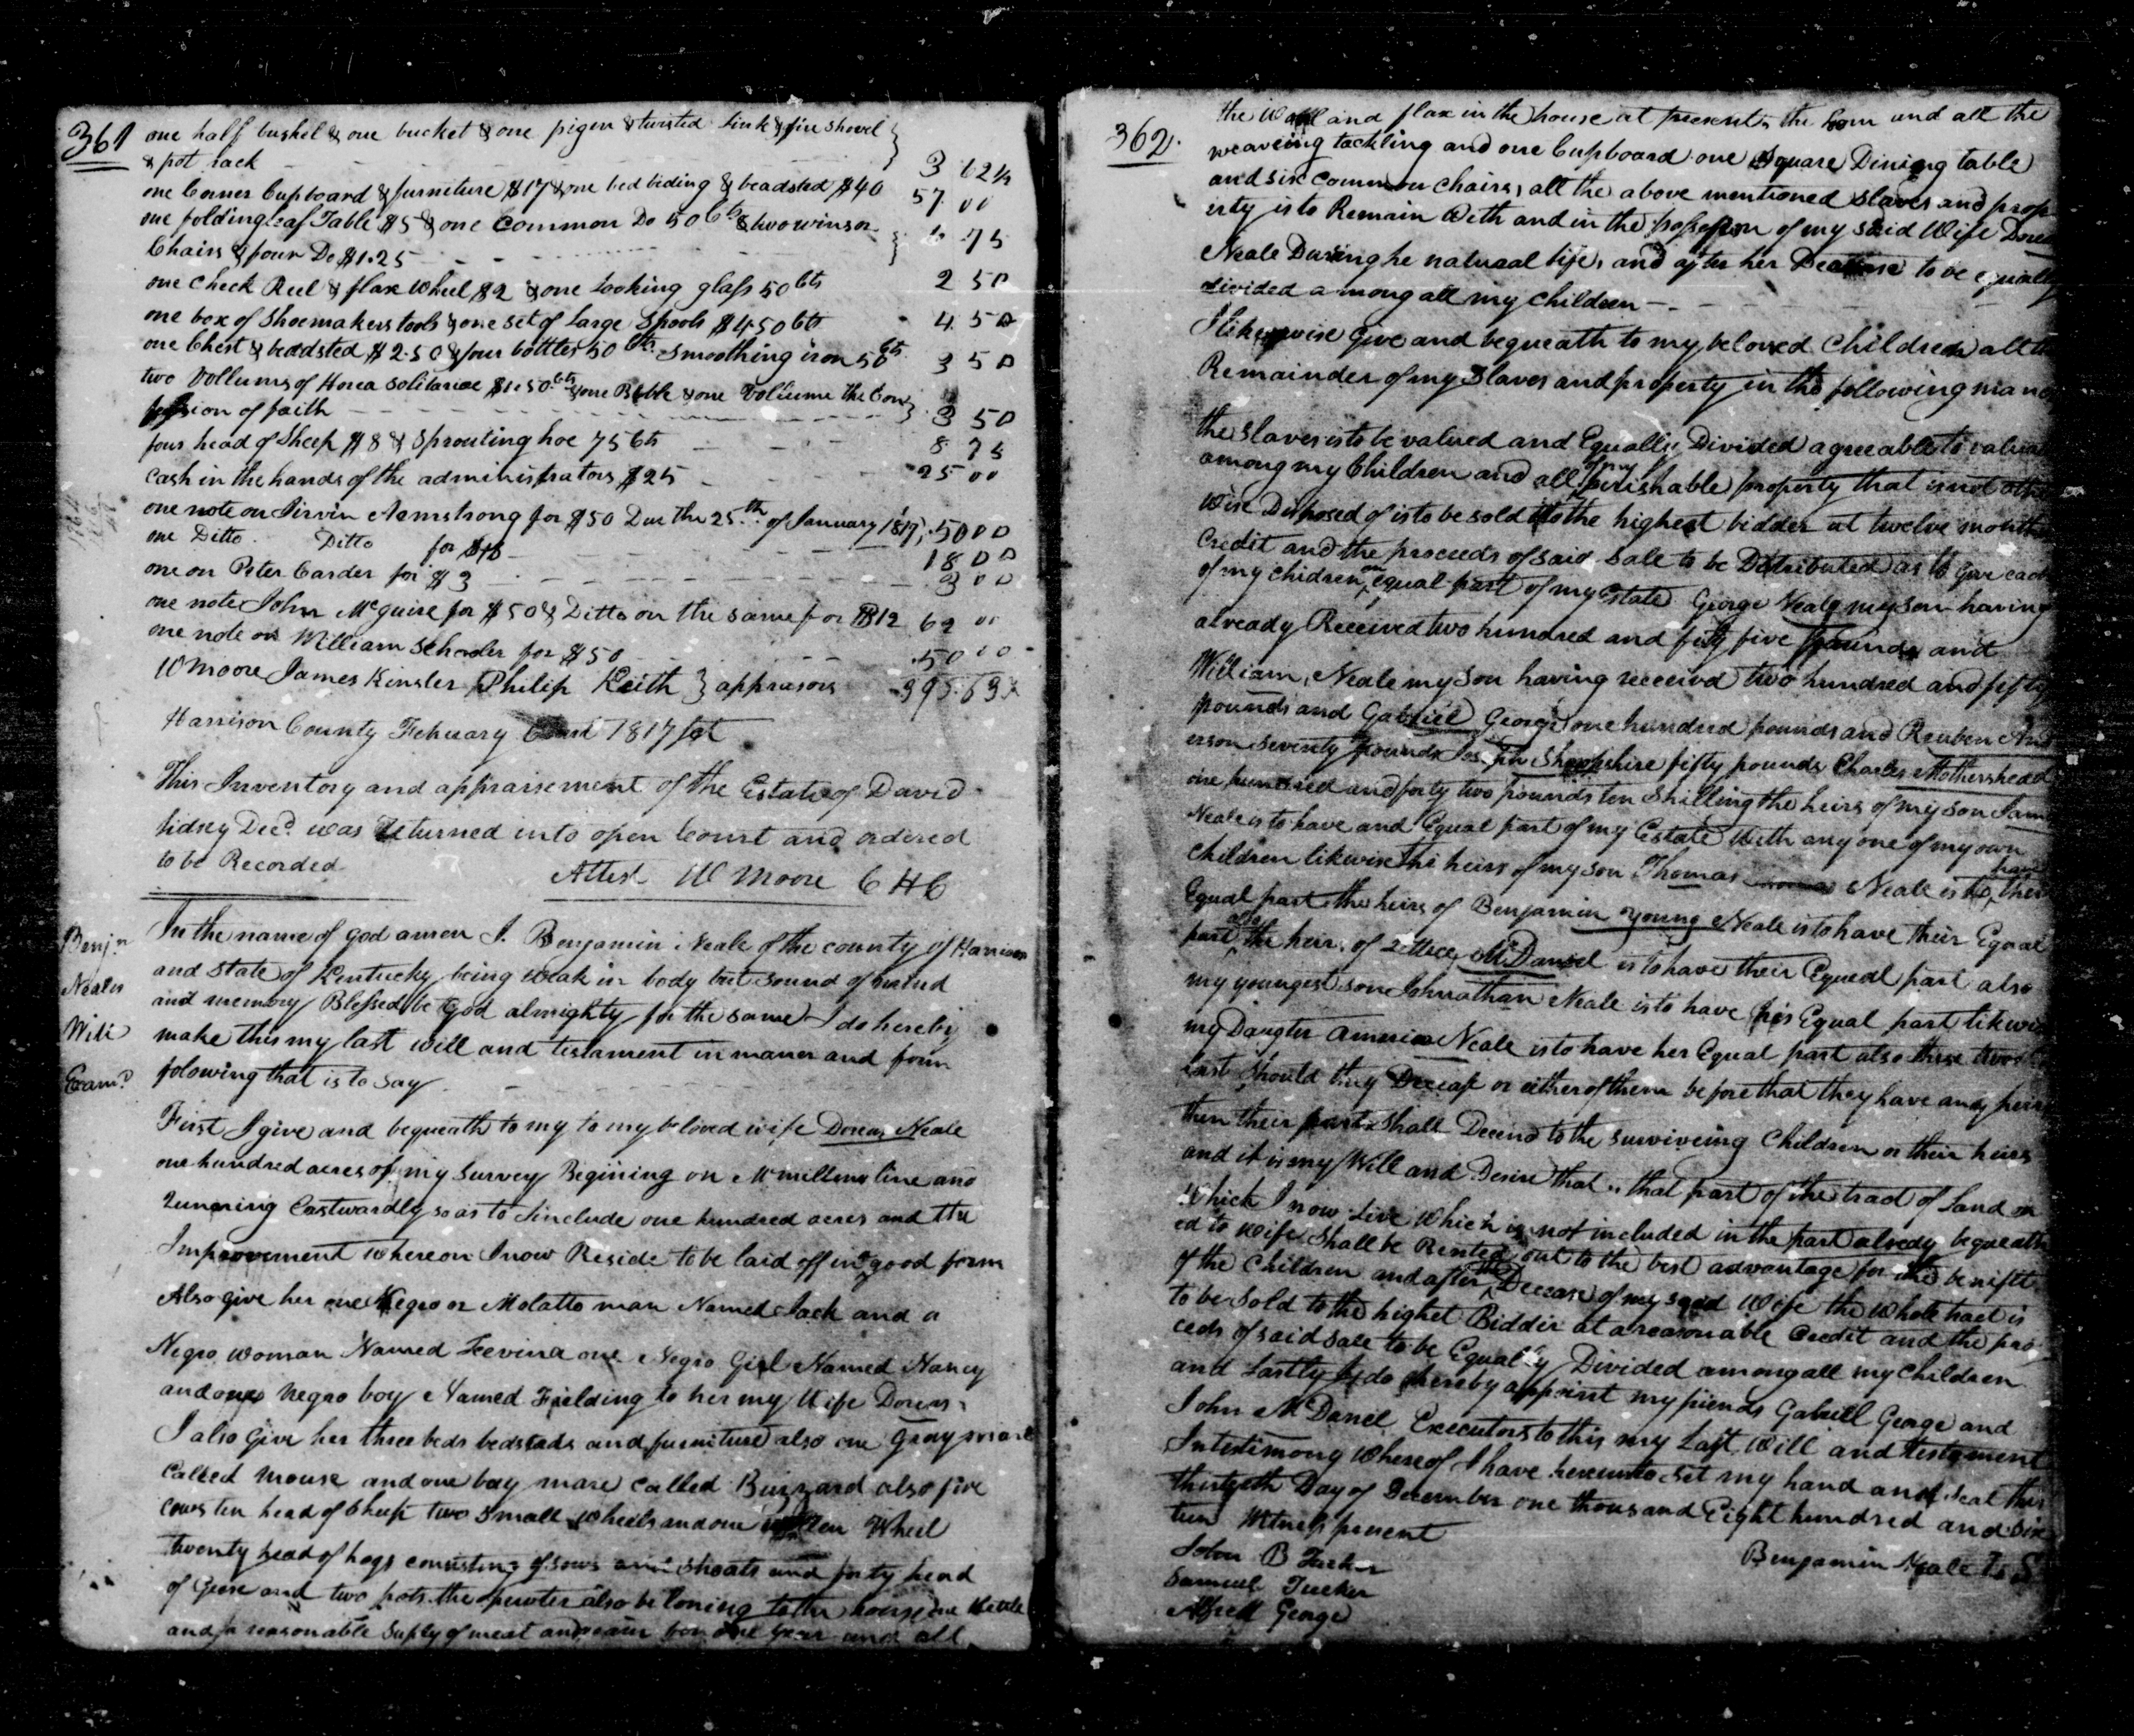 361
one half bushel & one bucket & one pigen & twisted link & fire shovel
& pot rack 3 62½
one Corner Cupboard & furniture $17 & one bed beding & beadsted $40 57 00
one folding leaf Table $5 & one Common Do 50 Cts & two winsor
Chairs & four Do $1.25 75
one Check Reel & flax Wheel $2 & one Looking glass 50 Cts 2 50
one box of Shoemakers tools & one set of Large Spools $4.50 Cts 4.50
one Chest & beadsted $2.50 & four bottles 50 Cts Smoothing iron 50 Cts 3 50
two Vollums of Horea Solitariae $1.50 Cts & one Bible & one Vollume the Con
fession of faith 3 50
four head of Sheep $8 & Sprouting hoe 75 Cts 8 75
Cash in the hands of the administrators $25 25 00
one note on Armstrong for $50 Due the 25th of January 1817 50 00
one Ditto Ditto for $18 18 00
one on Peter Carder for $3 3 00
one note John McGuire for $50 & Ditto on the same for $12 62 00
one note on William for $50 50 00
W Moore James Kinsler Philip Keith } apprasors
Harrison County Febuary Court 1817 Sct
This Inventory and appraisement of the Estate of David
Lidsey Decd. was Returned into open Court and ordered
to be Recorded
Attest W Moore C H C
Benjn
Neales
Will
Examd
In the name of god amen I. Benjamin Neale of the county of Harrison
and State of Kentucky being weak in body but Sound of mind
and memory Blessed be God almighty for the same I do hereby
make this my last will and testament in maner and form
folowing that is to say
First I give and bequeath to my to my beloved wife Dorcas Neale
one hundred acres of my Survey Begining on McMillins line and
Running Eastwardly so as to Include one hundred acres and the
Improvement whereon I now Reside to be laid off in good form
Also give her one Negro or Molatto man Named Jack and a
Negro woman Named Fevina one Negro Girl Named Nancy
and one Negro boy Named Fielding to her my Wife Dorcas
I also Give her three beds bedstads and furniture also one Gray mare
Called Mouse and one bay mare Called Buzzard also five
cows ten head of Sheep two Small Wheels and one Wheel
Twenty head of hogs consisting of sows and Shoats and forty head
of Geese and two pots the pewter also beloning to the house one Kettle
and a reasonable Suply of meat and for one year and all
362.
the Wooll and flax in the house at present, the loom and all the
weaveing tackling and one Cupboard one Square Dining table
and six common Chairs, all the above mentioned Slaves and prop
erty is to Remain With and in the possession of my said Wife
Neale During he natural life, and after her Decease to be equally
divided among all my children
I likewise Give and bequeath to my beloved Children all the
Remainder of my Slaves and property in the following man
the Slaves is to be valued and Equally Divided agreeable to
among my Children and all of my perishable property that is not
Wise Disposed of is to be sold to the highest bidder at twelve months
Credit and the proceeds of said Sale to be Distributed as to Give each
of my chidren, an equal part of my Estate George Neale my son having
already Received two hundred and fifty five pounds and
William, Neale my Son having received two hundred and fifty
pounds and Gabriel George one hundred pounds and Reuben And
erson Seventy pounds Joseph Shropshire fifty pounds Charles Mothershead
one hundred and forty two pounds ten Shilling the heirs of my son
Neale is to have and Equal part of my Estate With any one of my own
Children likewise the heirs of my son Thomas Neale is to have their
Equal part the heirs of Benjamin Young Neale is to have their Equal
part also the heirs of Lettice McDaniel is to have their Equeal part also
my youngest son Johnathan Neale is to have his Equal part
my Daugter America Neale is to have her Equal part also these two
last Should they Decease or either of them before that they have any heirs
then their parts Shall Decend to the surviveing Children or their heirs
and it is my Will and Desire that that part of the tract of Land on
Which I now live Which is not included in the part alredy bequeath
ed to wife Shall be Rented out to the best advantage for the benifit
of the Children and after the Decease of my said Wife the Whole tract is
to be Sold to the highet Bidder at a reasonable Credit and the pro
ceeds of said Sale to be Equally Divided among all my Children
and Lastly I do hereby appoint my friends Gabriel George and
John McDaniel Executors to this my Last Will and testament
In testimony Whereof I have hereunto Set my hand and Seal this
Day of December one thousand Eight hundred and Six
teen Witness present
Benjamin Neale L S
John B Tucker
Samuel Tucker
Alfred George